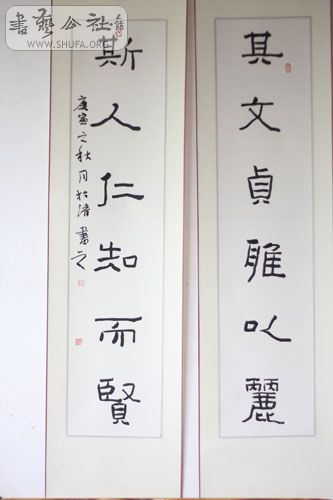 其文貞雅以麗
斯人仁知而賢
庚寅之秋月於清書之
書藝公社
WWW.SHUFA.ORG